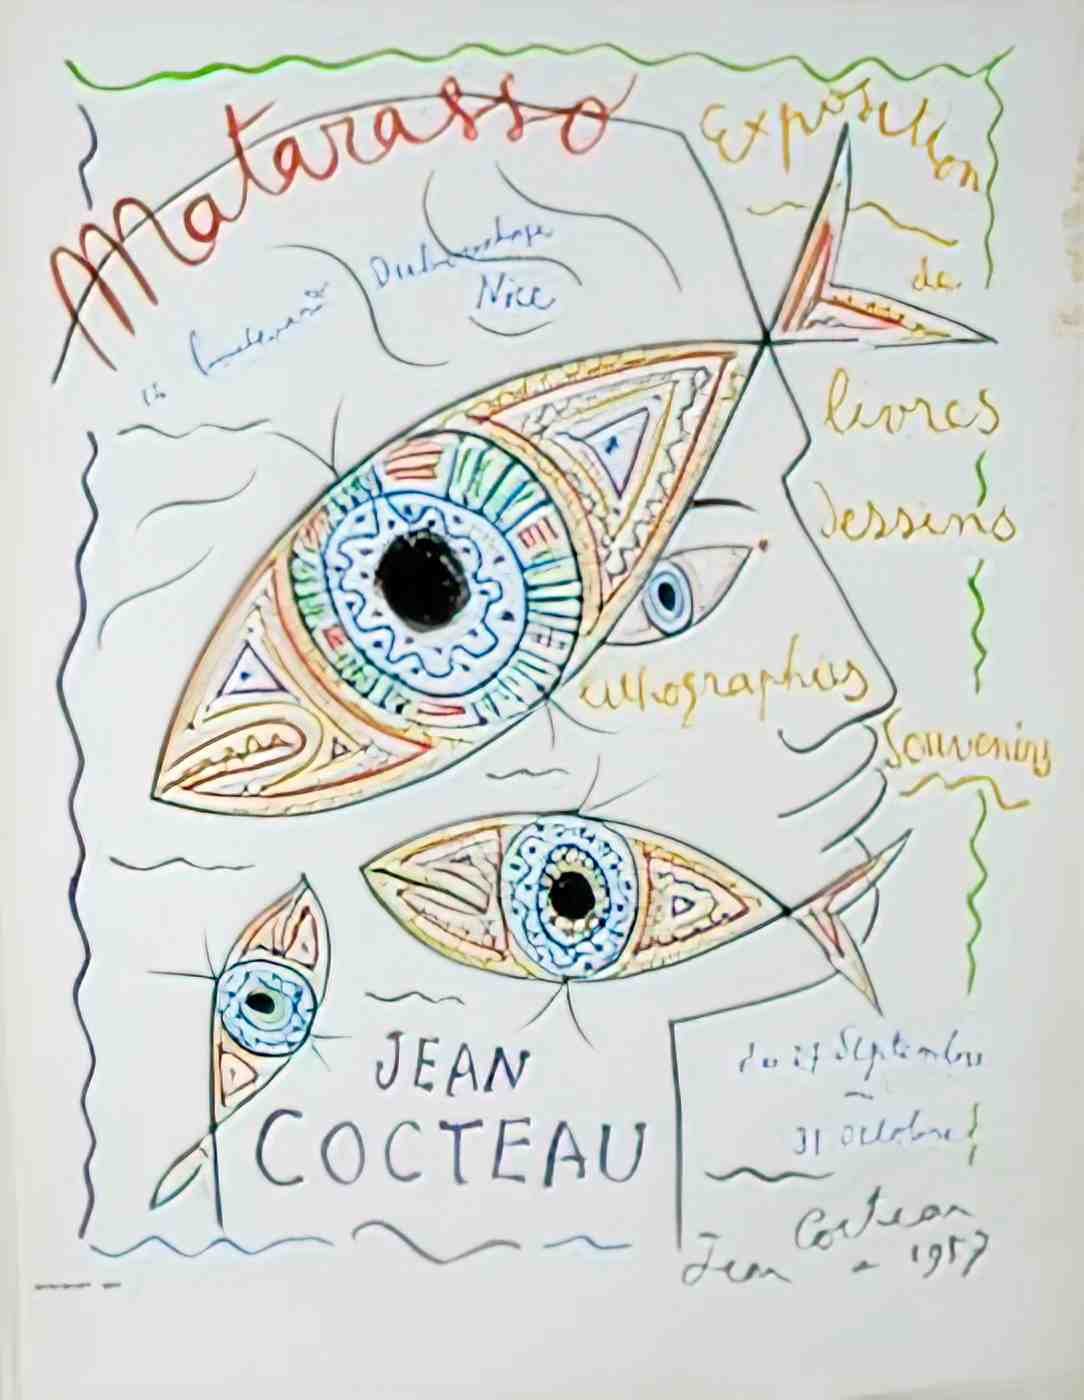 Matarasso
Exposition
de
Nice
livres
dessins
lithographies
Souvenirs
JEAN
COCTEAU
du 27 Septembre
31 Octobre
Jean Cocteau
1957